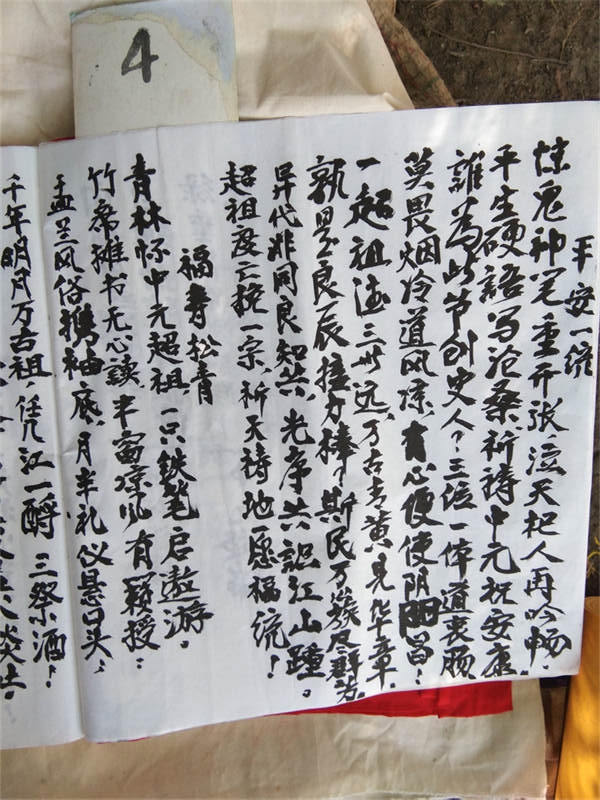 4
平安一统
鬼神笔重开张,泣天杞人再吟畅.
平生硬語写沧桑,祈祷中元祝安康.
誰为此节创史人?三位一体道衷肠.
莫畏烟冷道风凉,有心便使阴阳昌!
一超祖德三世远,万古青黄见华章.
孰思良辰接力棒,斯民万族及群芳.
异代非同良知共,光序共認江山踵。
超祖度亡挽一宗,祈天祷地一愿福统!
福寿松青
青林怀中元超祖,一只铁笔启遨游.
竹席摊书无心读,丰富凉风有授.
盂兰风俗携袖底,月半礼仪悬口头,
千年明月万古祖,任江一酹三祭酒!